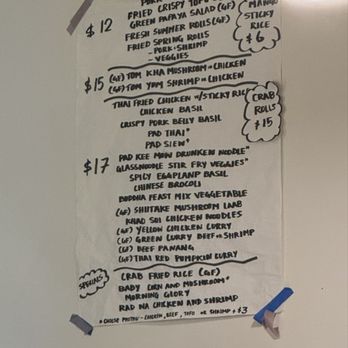 PORK
FRIED CRISPY TOFU
$12
GREEN PAPAYA SALAD (GF)
FRESH SUMMER ROLLS (GF)
FRIED SPRING ROLLS
- PORK + SHRIMP
- VEGGIES
MANGO
STICKY
RICE
$6
$15
(GF) TOM KHA MUSHROOM or CHICKEN
(GF) TOM YUM SHRIMP or CHICKEN
THAI FRIED CHICKEN w/STICKY RICE
CHICKEN BASIL
CRISPY PORK BELLY BASIL
PAD THAI*
PAD SIEW*
CRAB
ROLLS
$15
$17
PAD KEE MOW DRUNKEN NOODLE*
GLASSNOODLE STIR FRY VEGGIES*
SPICY EGGPLANP BASIL
CHINESE BROCOLI
BUDDHA FEAST MIX VEGGETABLE
(GF) SHIITAKE MUSHROOM LAAB
KHAO SOI CHICKEN NOODLES
(GF) YELLOW CHICKEN CURRY
(GF) GREEN CURRY BEEF OR SHRIMP
(GF) BEEF PANANG
(GF) THAI RED PUMPKIN CURRY
SPECIALS
CRAB FRIED RICE (GF)
BABY CORN AND MUSHROOM*
MORNING GLORY
RAD NA CHICKEN AND SHRIMP
* CHOOSE PROTEIN - CHICKEN, BEEF, TOFU OR SHRIMP + $3